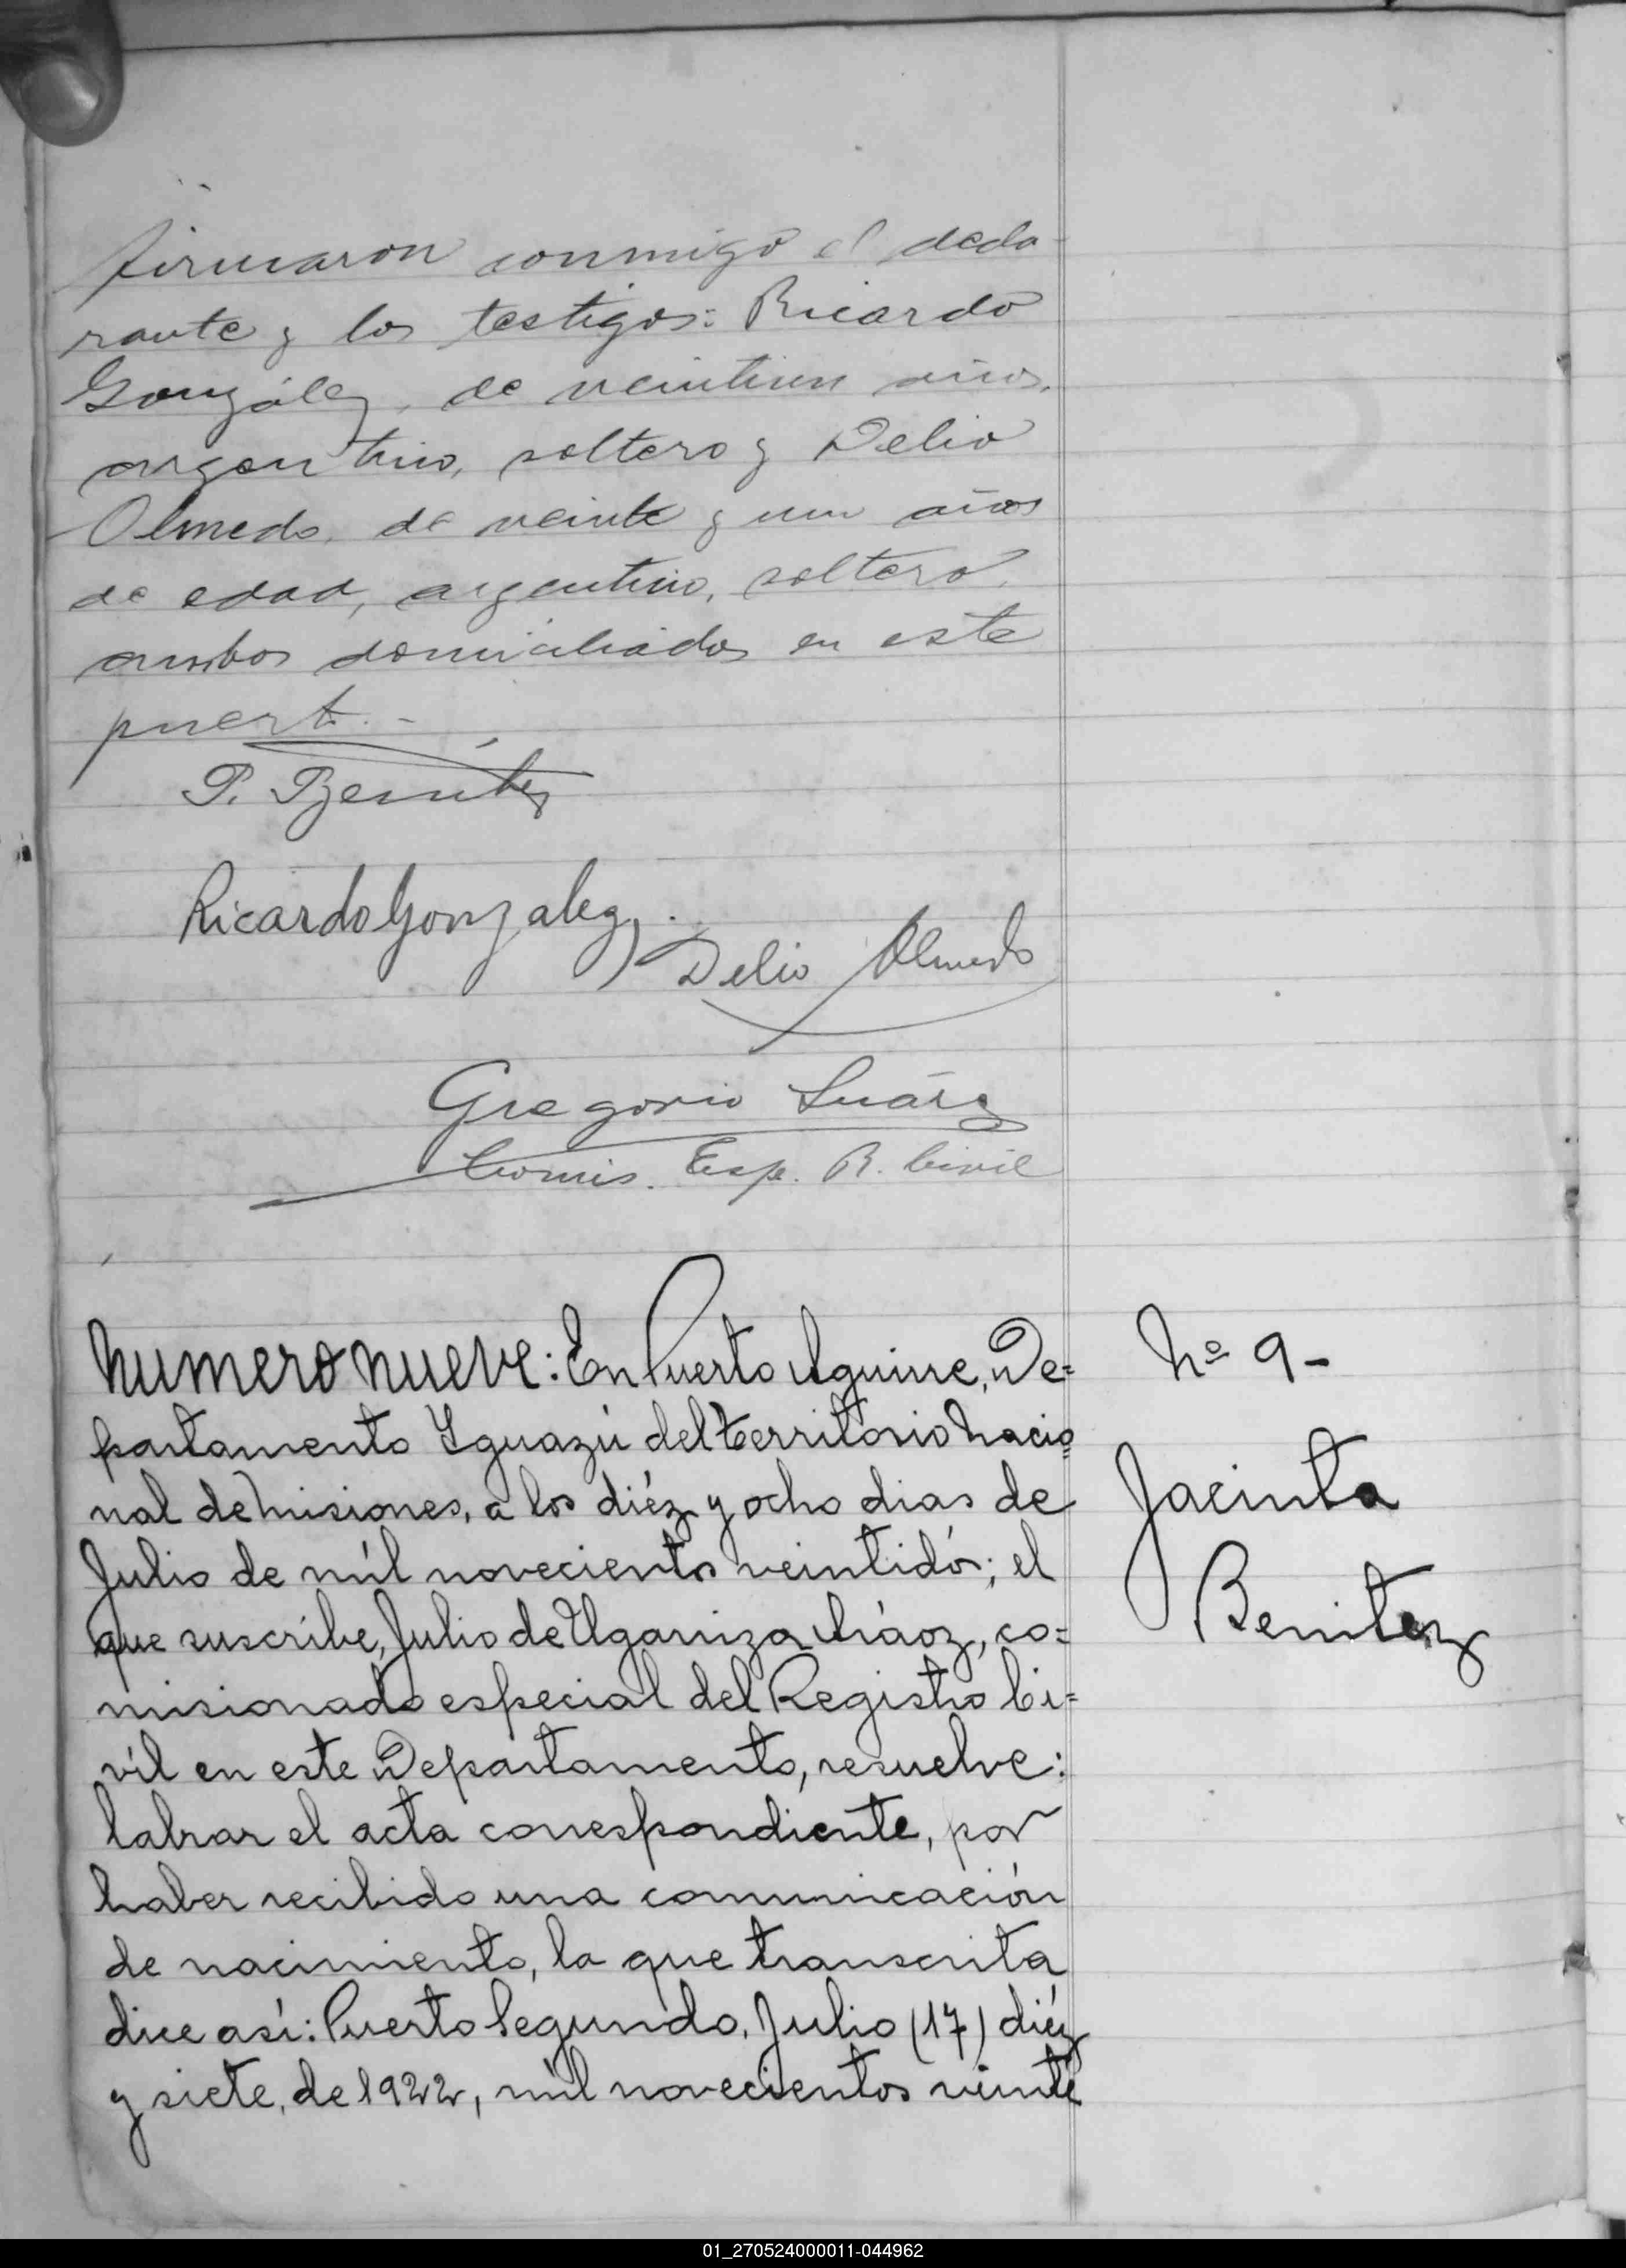 firmaron conmigo el decla-
rante y los testigos: Ricardo
González, de veintiun años,
argentino, soltero y Delio
Olmedo, de veinte y un años
de edad, argentino, soltero,
ambos domiciliados en este
puerto.-
P. Benitez
Ricardo Gonzalez
Delio Olmedo
Gregorio Suárez
Comis. Esp. R. Civil
Numero nueve: En Puerto Aguirre, De=
partamento Yguazú del territorio Nacio
nal de Misiones, a los diéz y ocho dias de
Julio de míl novecientos veintidós; el
que suscríbe, Julio de Ugarriza Aráoz, co=
misionado especial del Registro Ci=
víl en este Departamento, resuelve:
labrar el acta correspondiente, por
haber recibido una comunicación
de nacimiento, la que transcrita
dice así: Puerto Segundo, Julio (17) diéz
y siete, de 1922, mil novecientos veinte
Nº 9-
Jacinta
Benitez
01_270524000011-044962